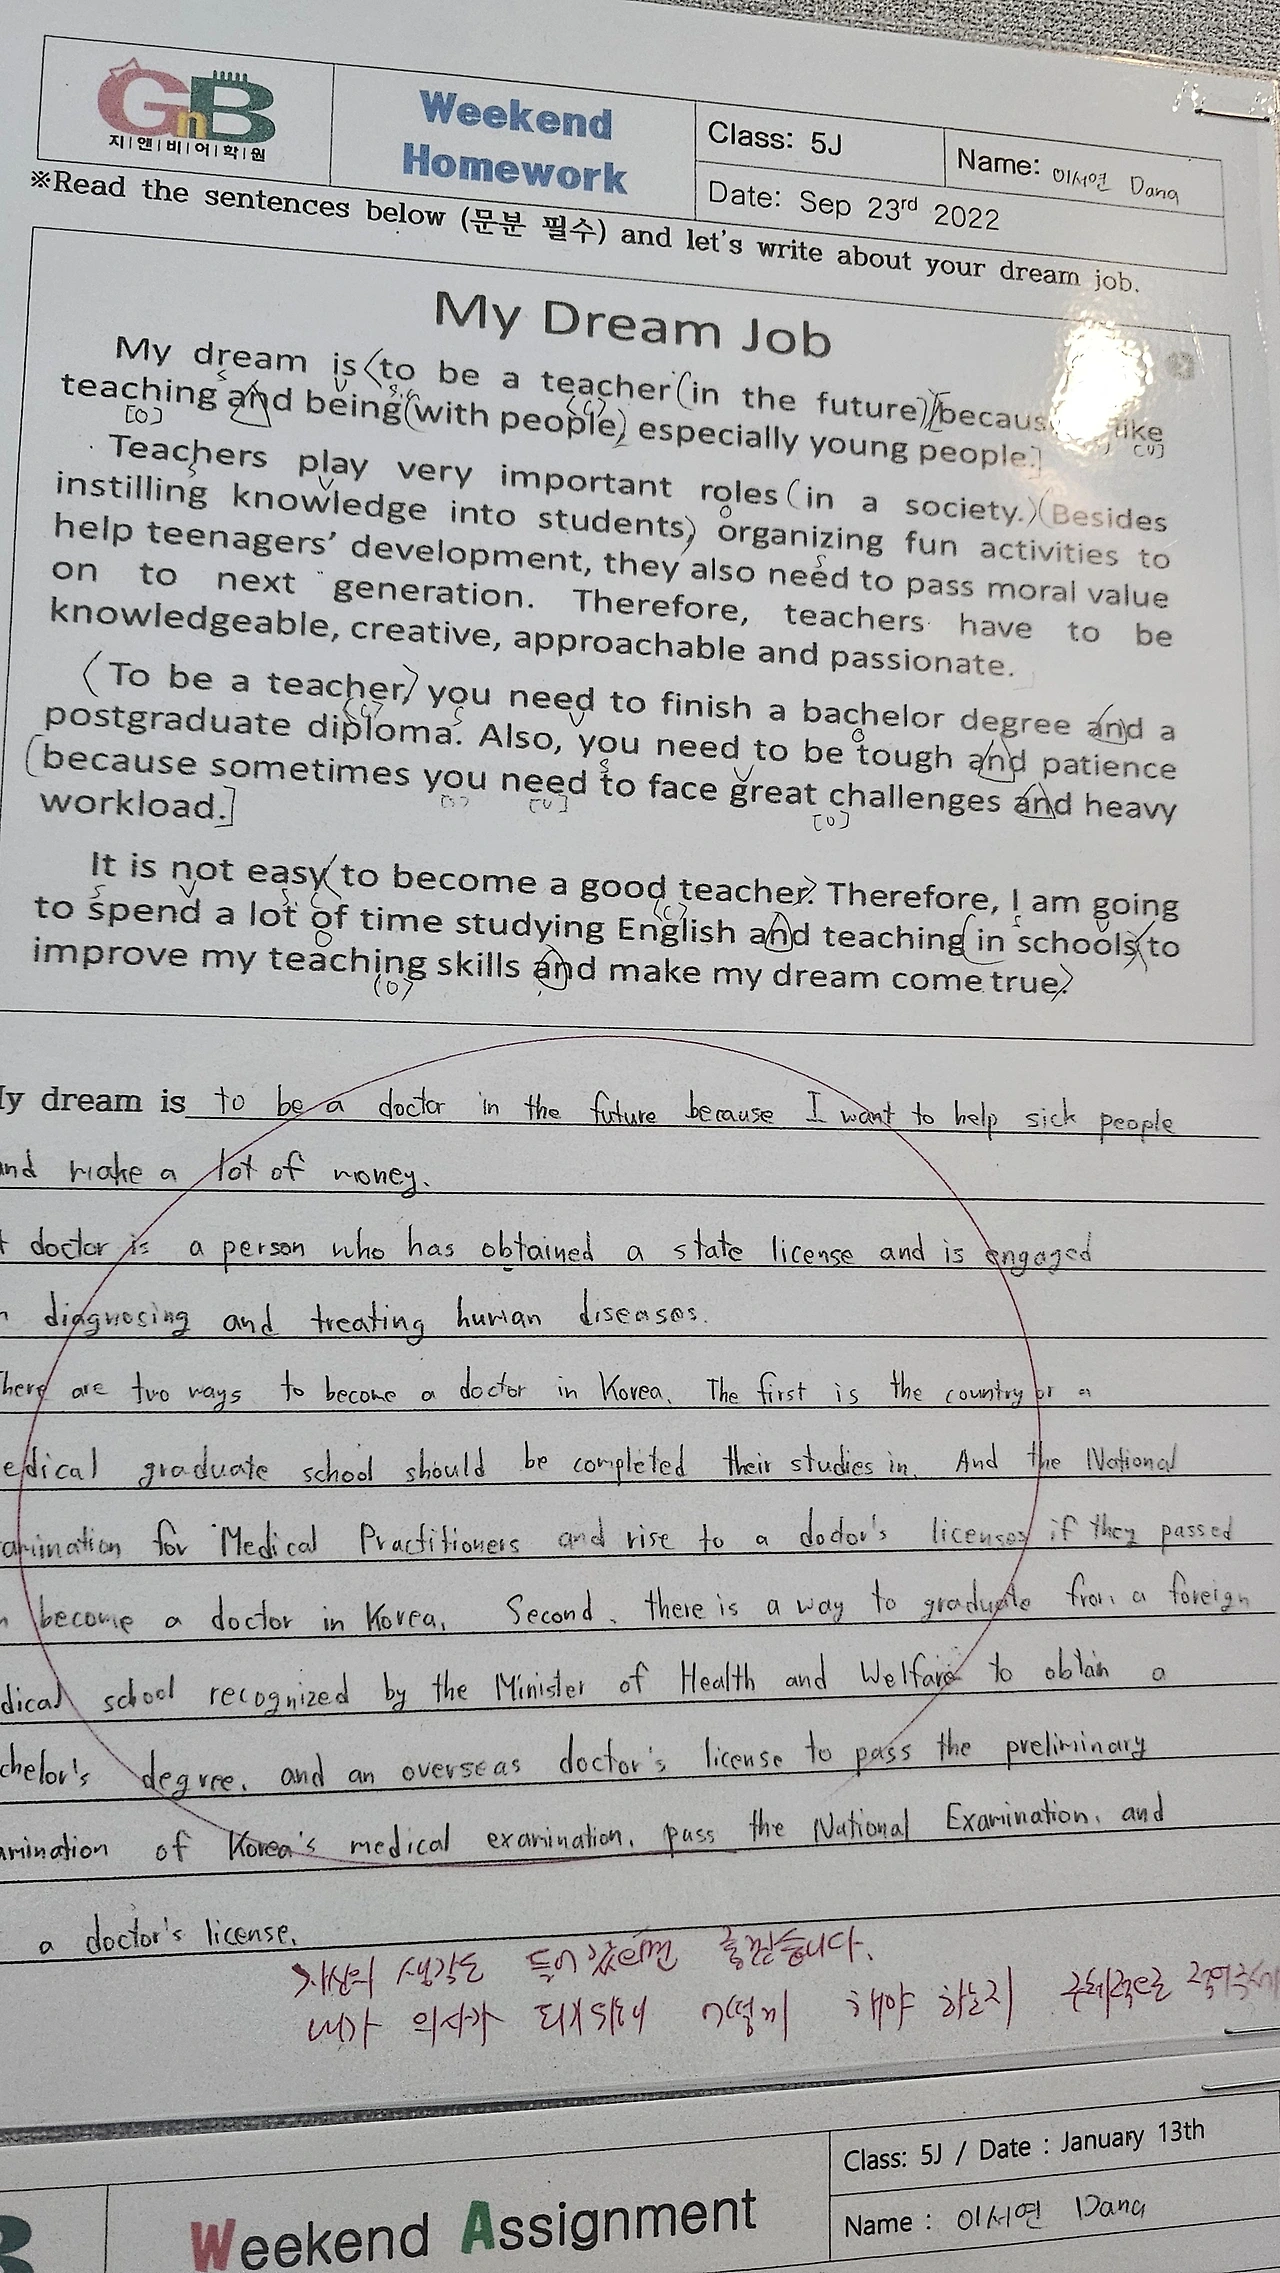 GnB
지|앤|비|어|학|원
Weekend
Homework
Class: 5J
Name: 이서연 Dana
Date: Sep 23rd 2022
※Read the sentences below (문분 필수) and let's write about your dream job.
My Dream Job
My dream is to be a teacher in the future because like
teaching and being with people, especially young people.
Teachers play very important roles in a society. Besides
instilling knowledge into students, organizing fun activities to
help teenagers' development, they also need to pass moral value
on to next generation. Therefore, teachers have to be
knowledgeable, creative, approachable and passionate.
To be a teacher, you need to finish a bachelor degree and a
postgraduate diploma. Also, you need to be tough and patience
because sometimes you need to face great challenges and heavy
workload.
It is not easy to become a good teacher. Therefore, I am going
to spend a lot of time studying English and teaching in schools to
improve my teaching skills and make my dream come true.
My dream is to be a doctor in the future because I want to help sick people
and make a lot of money.
doctor is a person who has obtained a state license and is engaged
diagnosing and treating human diseases.
There are two ways to become a doctor in Korea. The first is the country or a
medical graduate school should be completed their studies in. And the National
amination for Medical Practitioners and rise to a doctor's licenses if they passed
become a doctor in Korea. Second, there is a way to graduate from a foreign
dical school recognized by the Minister of Health and Welfare to obtain a
chelor's degree, and an overseas doctor's license to pass the preliminary
amination of Korea's medical examination, pass the National Examination, and
a doctor's license.
자신의 생각도 들어갔으면 좋겠습니다.
내가 의사가 되기위해 어떻게 해야 하는지 구체적으로
Class: 5J / Date : January 13th
Weekend Assignment
Name : 이서연 Dana